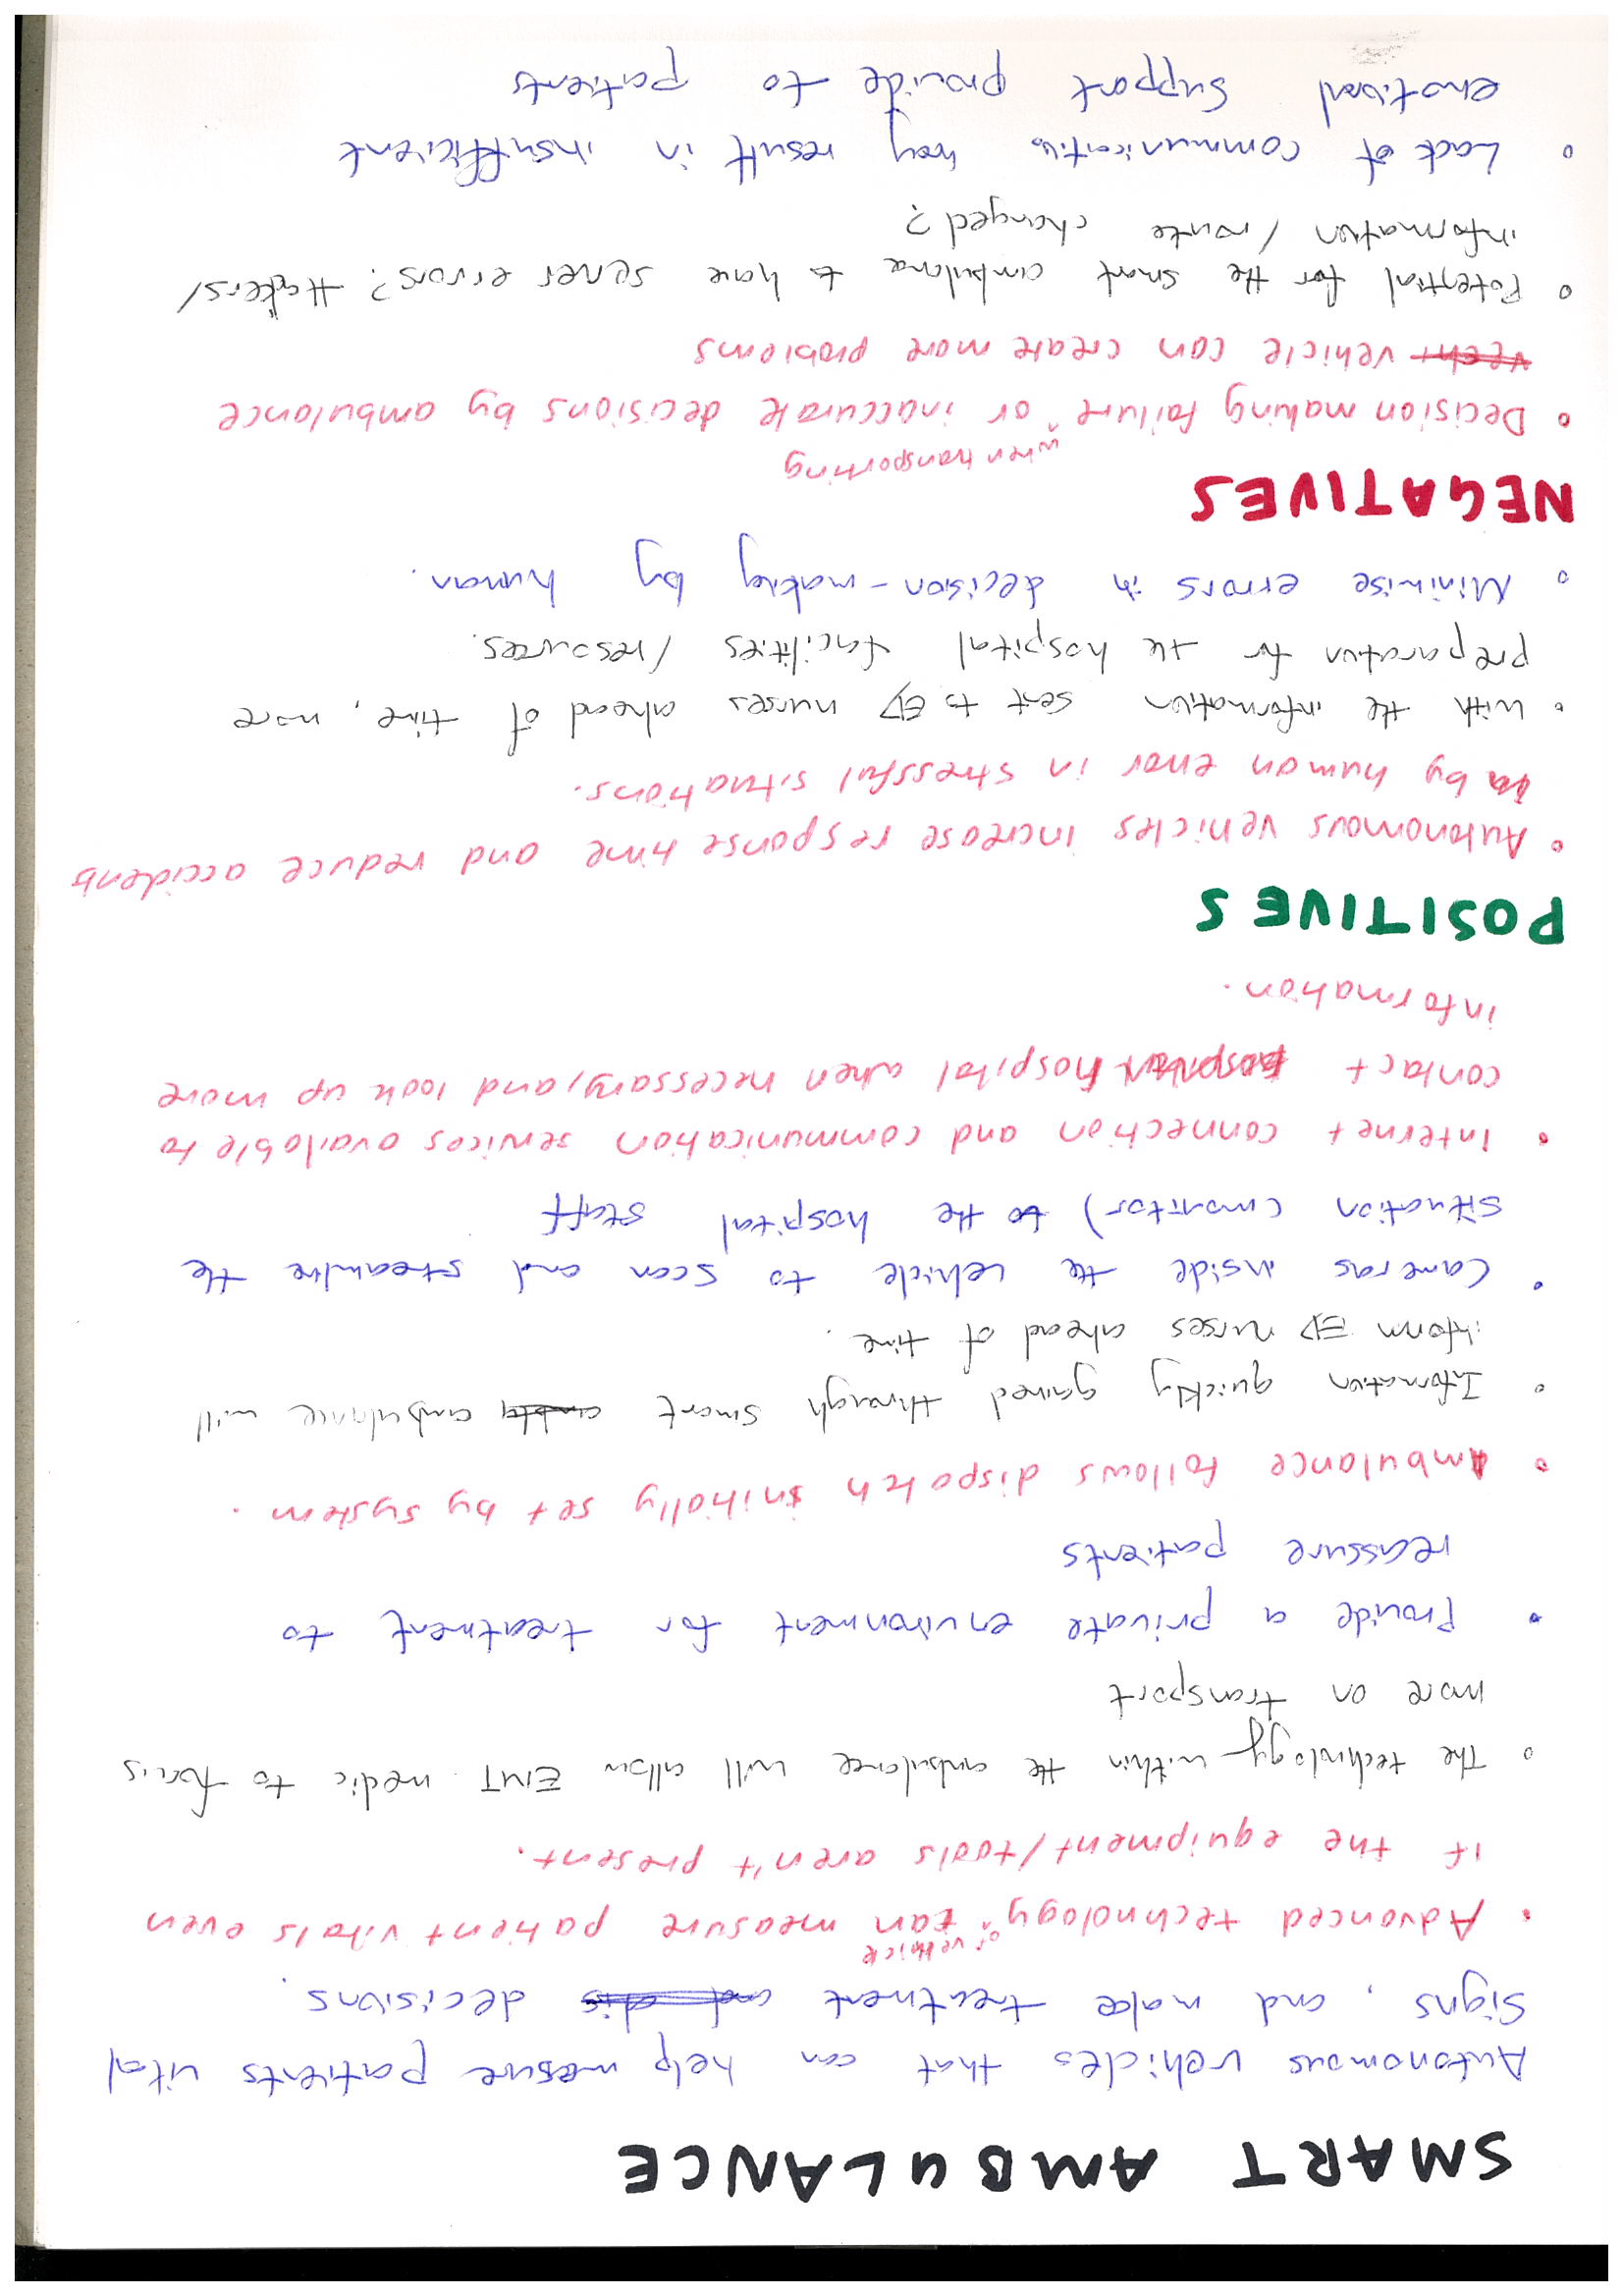 SMART AMBULANCE
Autonomous vehicles that can help measure patients vital
signs, and make treatment decisions.
• Advanced technology of vehicle can measure patient vitals even
if the equipment/tools aren't present.
• The technology within the ambulance will allow EMT medic to focus
more on transport
• Provide a private environment for treatment to
reassure patients
• Ambulance follows dispatch initially set by system.
• Information quickly gained through smart ambulance will
inform ED nurses ahead of time.
• Cameras inside the vehicle to scan and streamline the
situation (monitor) to the hospital staff
• Internet connection and communication services available to
contact hospital when necessary, and look up more
information.
POSITIVES
• Autonomous vehicles increase response time and reduce accidents
by human error in stressful situations.
• With the information sent to ED nurses ahead of time, more
preparation for the hospital facilities / resources.
• Minimise errors in decision-making by human.
NEGATIVES
• Decision making failure when transporting or inaccurate decisions by ambulance
vehicle can create more problems
• Potential for the smart ambulance to have server errors? Hackers/
information / route changed?
• Lack of communication may result in insufficient
emotional support provide to patients